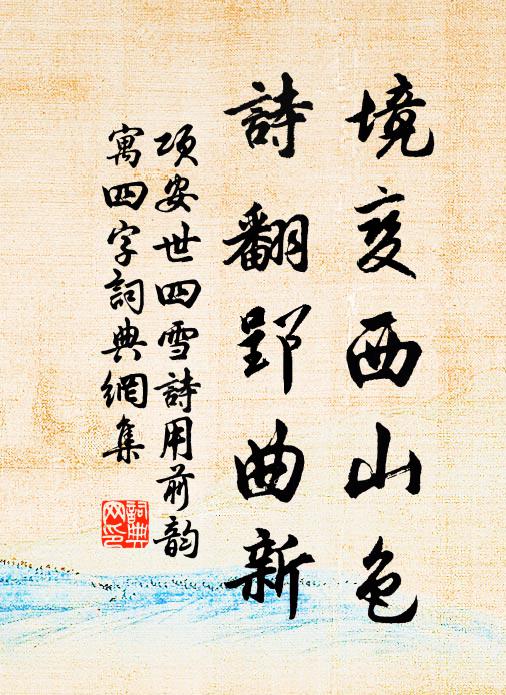 境变西山色
詩翻郢曲新
项安世四雪詩用前韵
寓四字詞典網集
詞典
网印